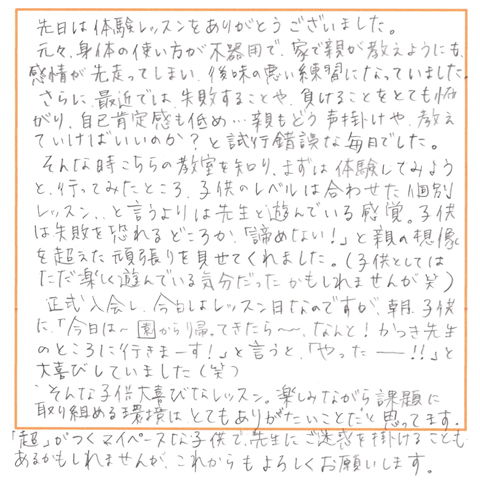 先日は体験レッスンをありがとうございました。
元々、身体の使い方が不器用で、家で親が教えようにも、
感情が先走ってしまい、後味の悪い練習になっていました。
さらに、最近では、失敗することや、負けることをとても怖
がり、自己肯定感も低め…親もどう声掛けや、教え
ていけばいいのか？と試行錯誤な毎日でした。
そんな時こちらの教室を知り、まずは体験してみよう
と、行ってみたところ、子供のレベルに合わせた個別
レッスン、、と言うよりは先生と遊んでいる感覚。子供
は失敗を恐れるどころか、「諦めない！」と親の想像
を超えた頑張りを見せてくれました。（子供としては
ただ楽しく遊んでいる気分だったかもしれませんが 笑）
正式入会し、今日はレッスン日なのですが、朝、子供
に、「今日は〜園から帰ってきたら〜〜、なんと！かつき先生
のところに行きまーす！」と言うと、「やったー！！」と
大喜びしていました（笑）
そんな子供大喜びなレッスン。楽しみながら課題に
取り組める環境はとてもありがたいことだと思ってます。
「超」がつくマイペースな子供で、先生にご迷惑を掛けることも
あるかもしれませんが、これからもよろしくお願いします。